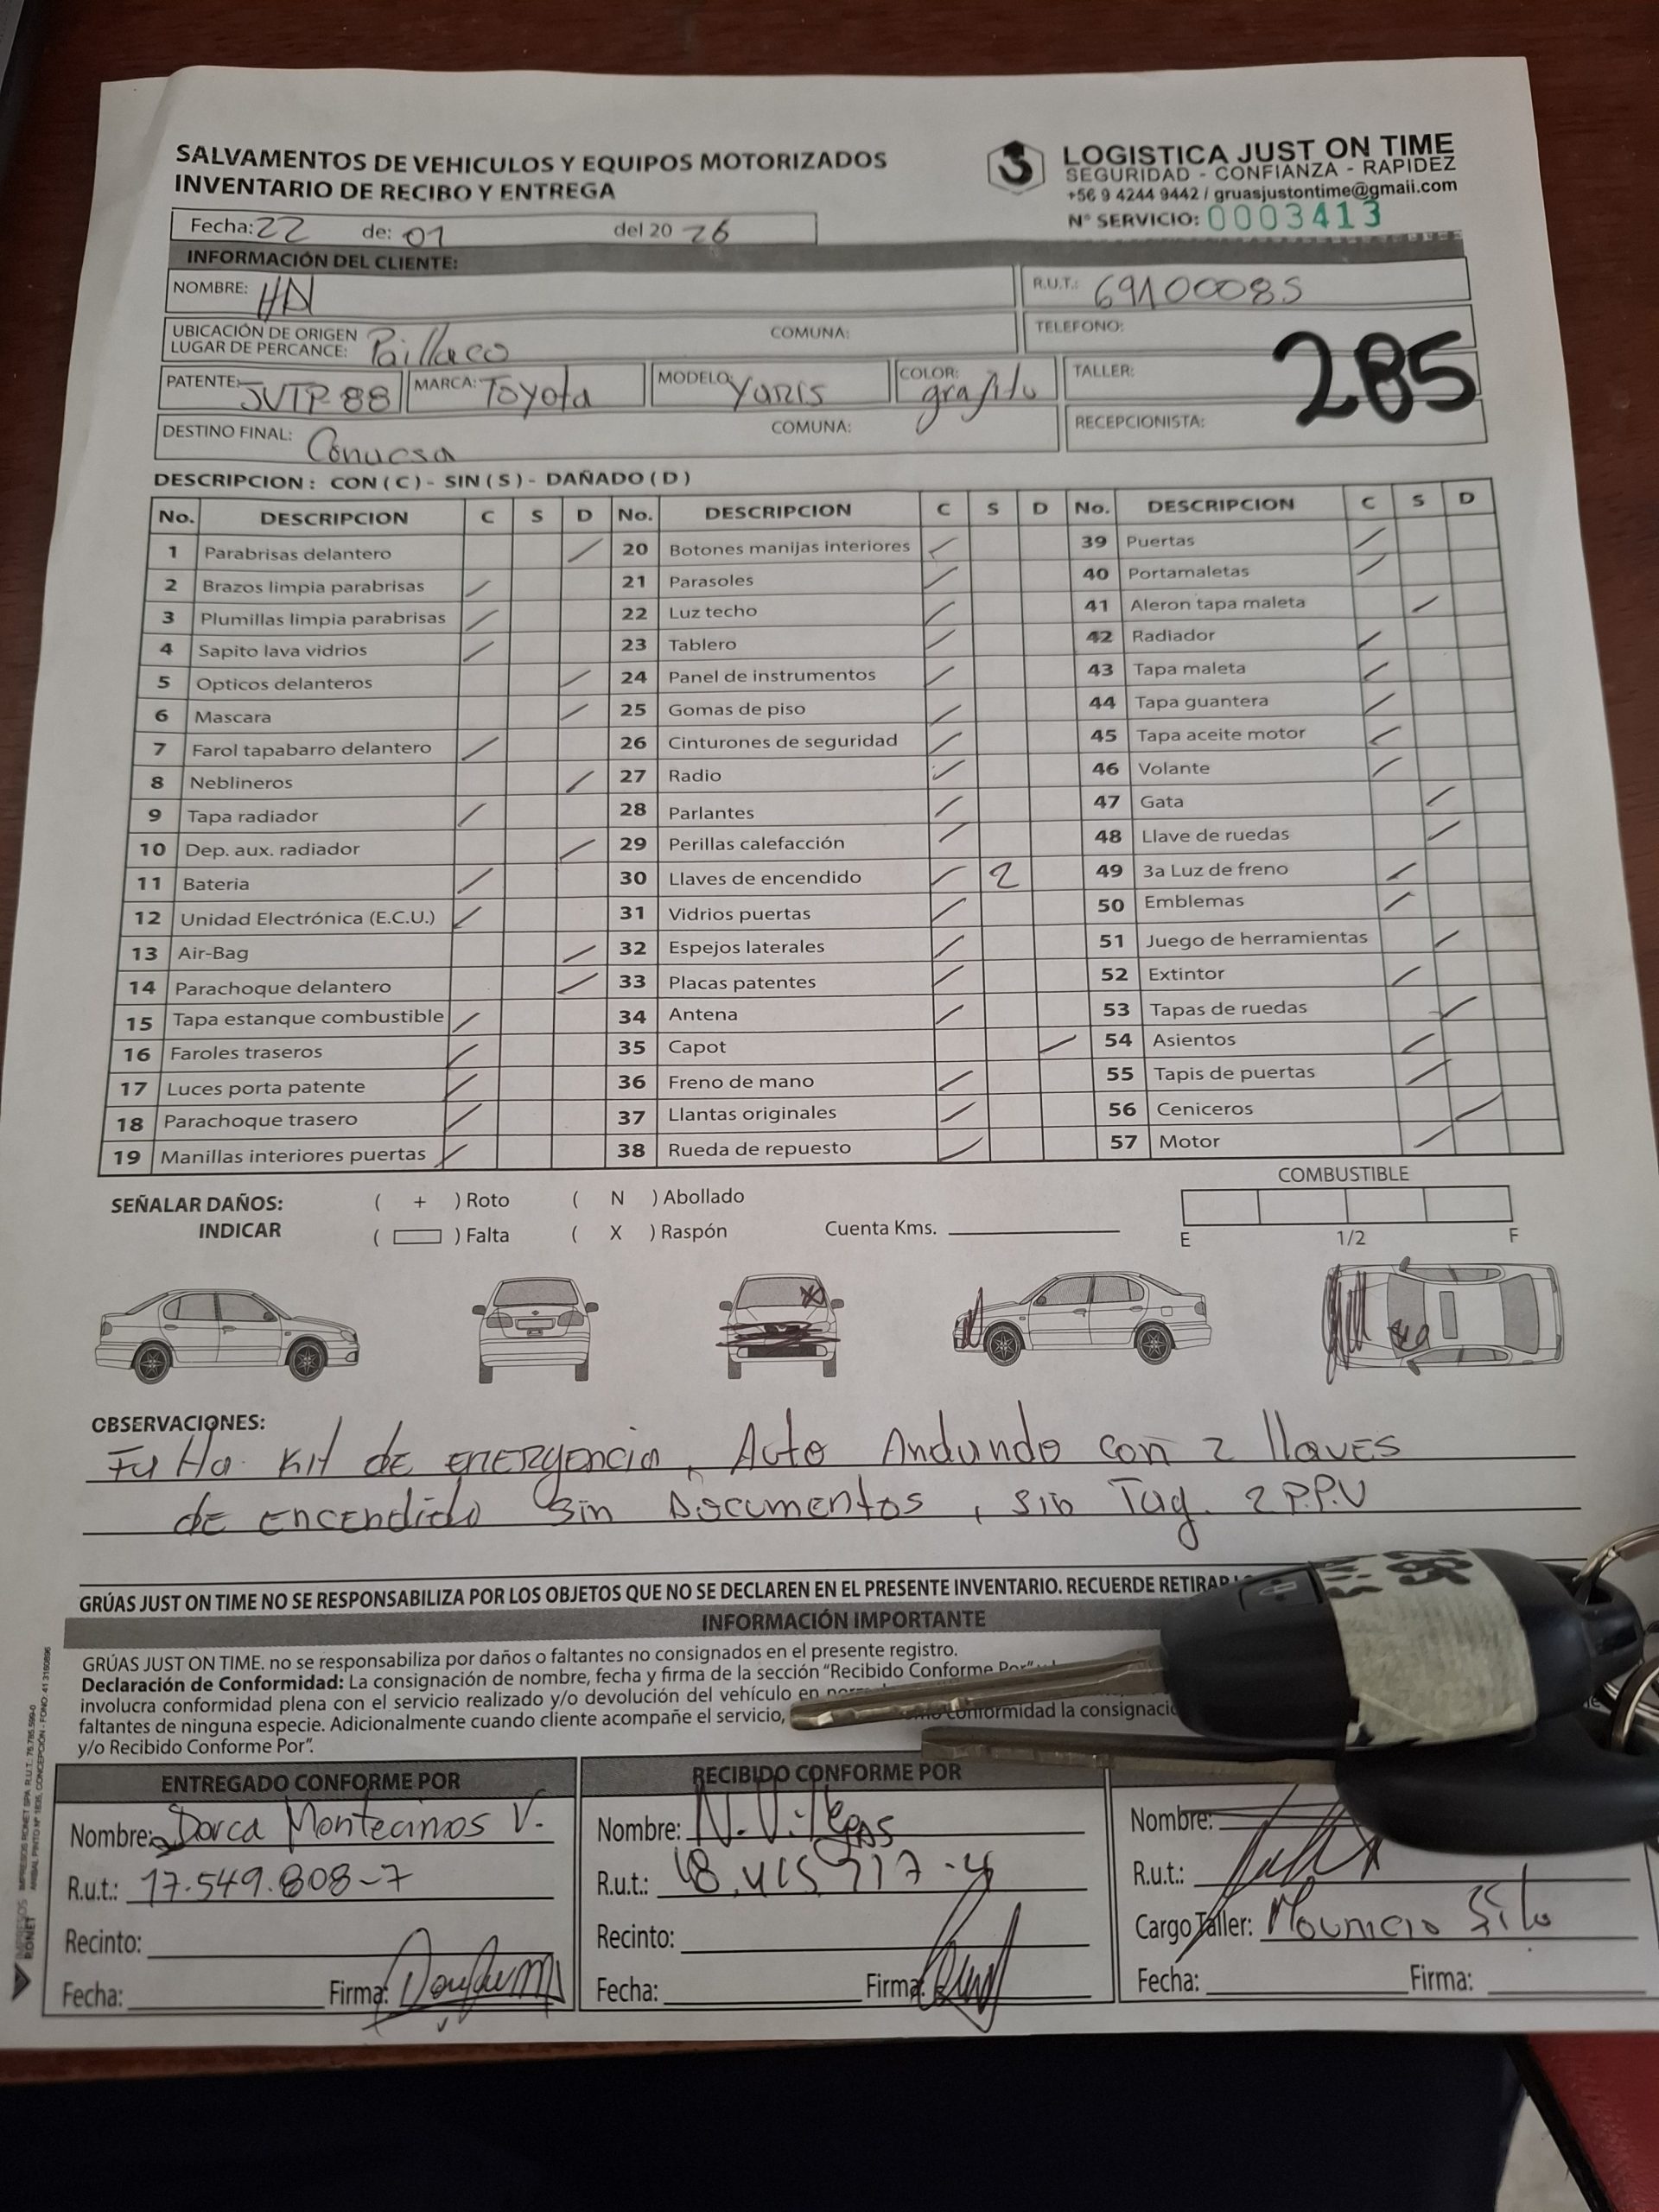 SALVAMENTOS DE VEHICULOS Y EQUIPOS MOTORIZADOS
INVENTARIO DE RECIBO Y ENTREGA
LOGISTICA JUST ON TIME
SEGURIDAD - CONFIANZA - RAPIDEZ
+56 9 4244 9442 / gruasjustontime@gmail.com
N° SERVICIO: 0003413
Fecha: 22 de: 01 del 20 26
INFORMACIÓN DEL CLIENTE:
NOMBRE: HDI R.U.T.: 69100085
UBICACIÓN DE ORIGEN
LUGAR DE PERCANCE: Paillaco COMUNA: TELEFONO:
PATENTE: JVTP-88 MARCA: Toyota MODELO: Yaris COLOR: grafito TALLER: 285
DESTINO FINAL: Conucsa COMUNA: RECEPCIONISTA:
DESCRIPCION : CON ( C ) - SIN ( S ) - DAÑADO ( D )
No. DESCRIPCION C S D No. DESCRIPCION C S D No. DESCRIPCION C S D
1 Parabrisas delantero 20 Botones manijas interiores 39 Puertas
2 Brazos limpia parabrisas 21 Parasoles 40 Portamaletas
3 Plumillas limpia parabrisas 22 Luz techo 41 Aleron tapa maleta
4 Sapito lava vidrios 23 Tablero 42 Radiador
5 Opticos delanteros 24 Panel de instrumentos 43 Tapa maleta
6 Mascara 25 Gomas de piso 44 Tapa guantera
7 Farol tapabarro delantero 26 Cinturones de seguridad 45 Tapa aceite motor
8 Neblineros 27 Radio 46 Volante
9 Tapa radiador 28 Parlantes 47 Gata
10 Dep. aux. radiador 29 Perillas calefacción 48 Llave de ruedas
11 Bateria 30 Llaves de encendido 2 49 3a Luz de freno
12 Unidad Electrónica (E.C.U.) 31 Vidrios puertas 50 Emblemas
13 Air-Bag 32 Espejos laterales 51 Juego de herramientas
14 Parachoque delantero 33 Placas patentes 52 Extintor
15 Tapa estanque combustible 34 Antena 53 Tapas de ruedas
16 Faroles traseros 35 Capot 54 Asientos
17 Luces porta patente 36 Freno de mano 55 Tapis de puertas
18 Parachoque trasero 37 Llantas originales 56 Ceniceros
19 Manillas interiores puertas 38 Rueda de repuesto 57 Motor
SEÑALAR DAÑOS: ( + ) Roto ( N ) Abollado COMBUSTIBLE
INDICAR ( ) Falta ( X ) Raspón Cuenta Kms. E 1/2 F
OBSERVACIONES:
Falta Kit de emergencia, Auto Andando con 2 llaves
de encendido sin Documentos, sin Tag. 2 P.P.U
GRÚAS JUST ON TIME NO SE RESPONSABILIZA POR LOS OBJETOS QUE NO SE DECLAREN EN EL PRESENTE INVENTARIO. RECUERDE RETIRAR
INFORMACIÓN IMPORTANTE
GRÚAS JUST ON TIME. no se responsabiliza por daños o faltantes no consignados en el presente registro.
Declaración de Conformidad: La consignación de nombre, fecha y firma de la sección "Recibido Conforme Por"
involucra conformidad plena con el servicio realizado y/o devolución del vehículo en
faltantes de ninguna especie. Adicionalmente cuando cliente acompañe el servicio, conformidad la consignación
y/o Recibido Conforme Por".
ENTREGADO CONFORME POR RECIBIDO CONFORME POR
Nombre: Dorca Montecinos V. Nombre: N. Villegas Nombre:
R.u.t.: 17.549.808-7 R.u.t.: R.u.t.:
Recinto: Recinto: Cargo Taller: Mauricio Silo
Fecha: Firma: Fecha: Firma: Fecha: Firma:
IMPRESOS RONET
285